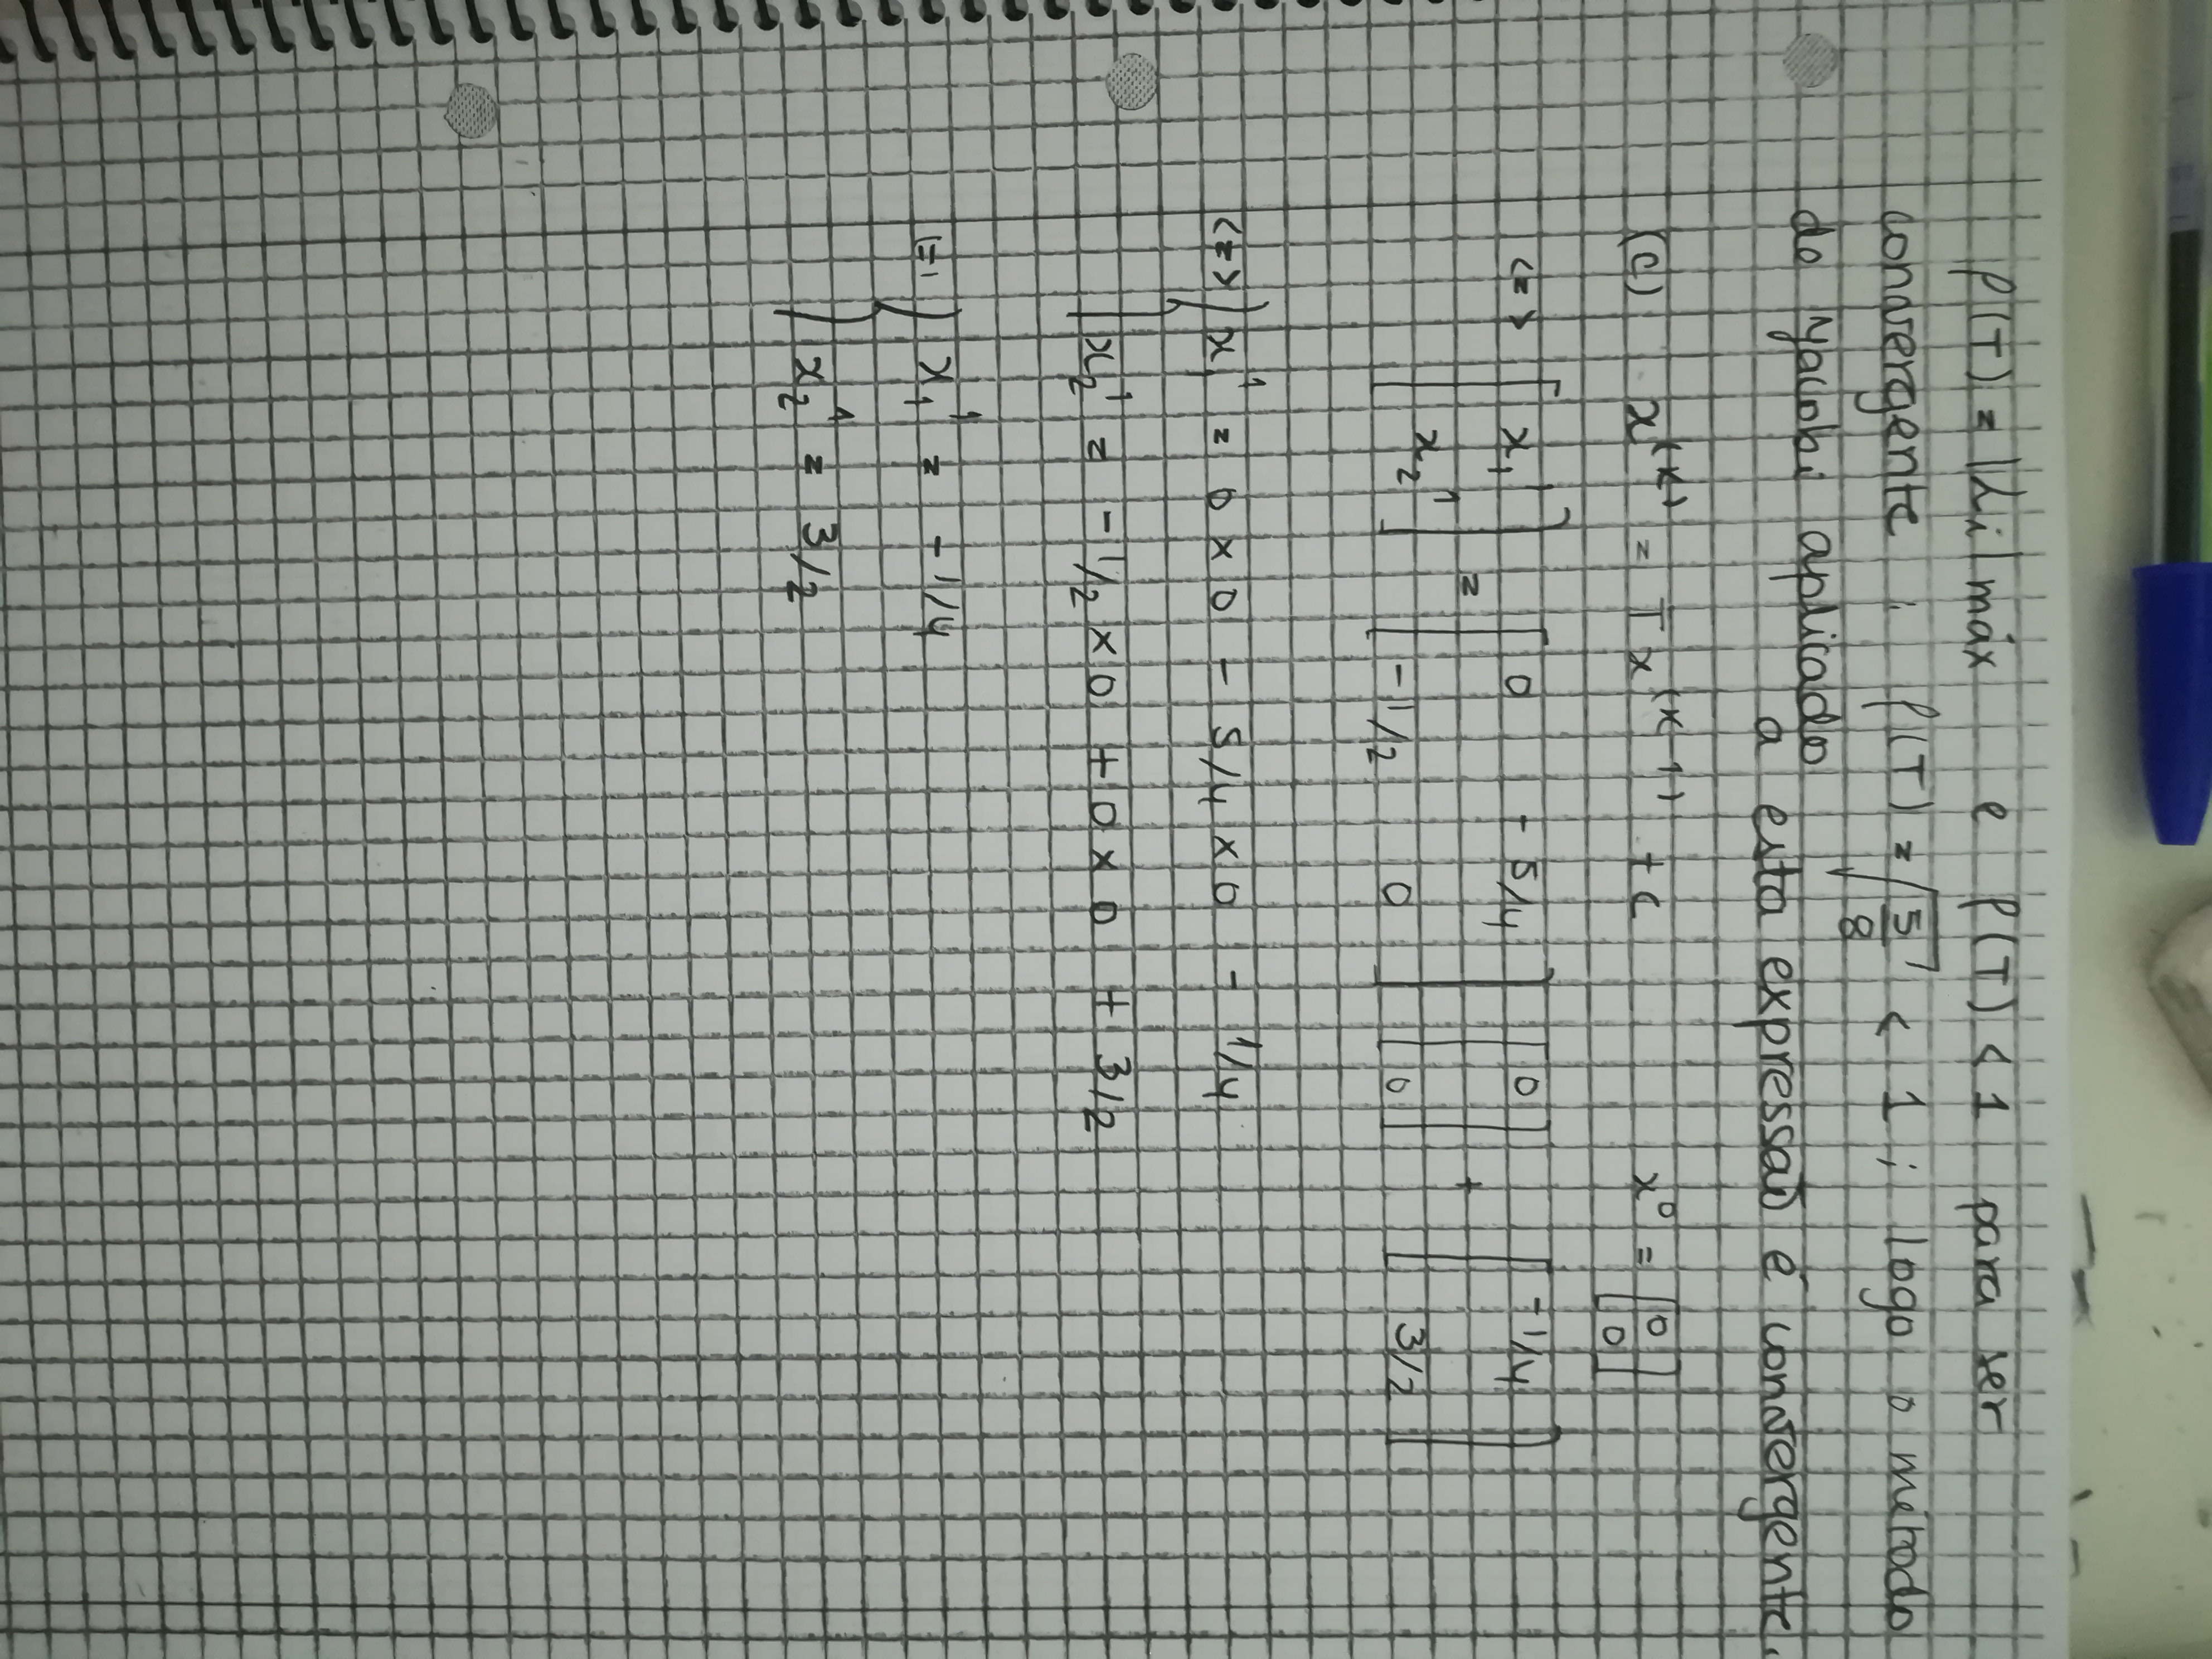 ρ(T) = |λi| máx e ρ(T) < 1 para ser
convergente : ρ(T) = √(5/8) < 1 ; logo o método
de yacobi aplicado
a esta expressão é convergente.
(c) x^(k) = T x^(k-1) + c x^0 = [0 0]
<=> [x₁ x₂^1] = [0 -5/4 -1/2 0] [0 0] + [-1/4 3/2]
<=> { x^1 = 0 × 0 - 5/4 × 0 - 1/4
x₂^1 = -1/2 × 0 + 0 × 0 + 3/2
(=) { x₁^1 = -1/4
x₂^1 = 3/2